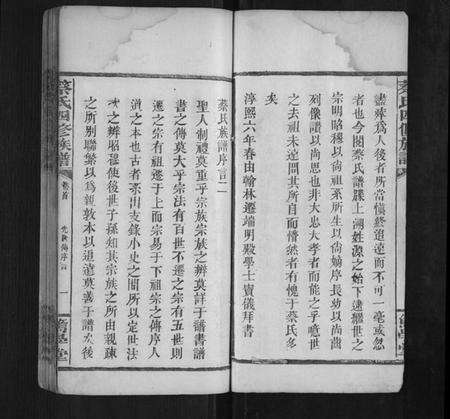 蔡氏四修族譜
盡葬爲人後者所當愼終追遠而不可一毫或忽
者也今閱蔡氏譜牒上溯姓源之始下逮懋世之
宗明昭穆以尙祖系所生以尙嫡序長幼以尙齒
列像讚以尙思也非大忠大孝者而能之乎噫世
之去祖未遠問其所自而懵然者有愧于蔡氏多
矣
淳熙六年春由翰林遷端明殿學士竇儀拜書
蔡氏族譜序言二
聖人制禮莫重乎宗族宗族之辨莫詳于譜書譜
書之傳莫大乎宗法有百世不遷之宗有五世則
遷之宗有祖遷于上而宗易于下祖宗之傳序人
道之本也古者宗出支錄小史之問所以定世法
次之辨昭穆使後世子孫知其宗族之所由親疎
之所別聯繫以爲新敦本以追遠莫善于譜
後
蔡氏四修族譜
卷首
先世傳序言
一
濟陽堂